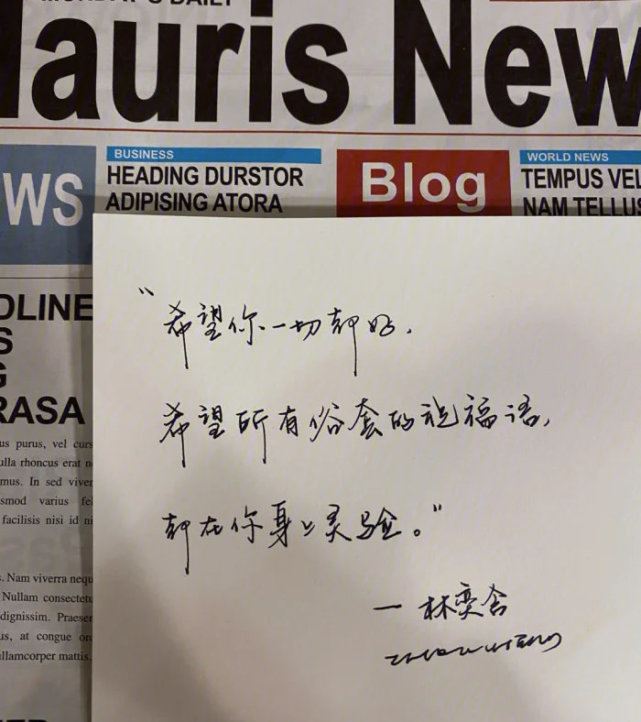 MONDAY'S DAILY
Mauris New
BUSINESS
HEADING DURSTOR
ADIPISING ATORA
Blog
WORLD NEWS
TEMPUS VEL
NAM TELLUS
WS
DLINE
S
G
RASA
us purus, vel curs
ulla rhoncus erat n
mus. In sed viver
smod varius fe
facilisis nisi id ni
s. Nam viverra nequ
Nullam consectetu
dignissim. Praesen
us, at congue or
llamcorper mattis.
“希望你一切都好.
希望所有俗套的祝福语,
都在你身上灵验。”
一 林奕含